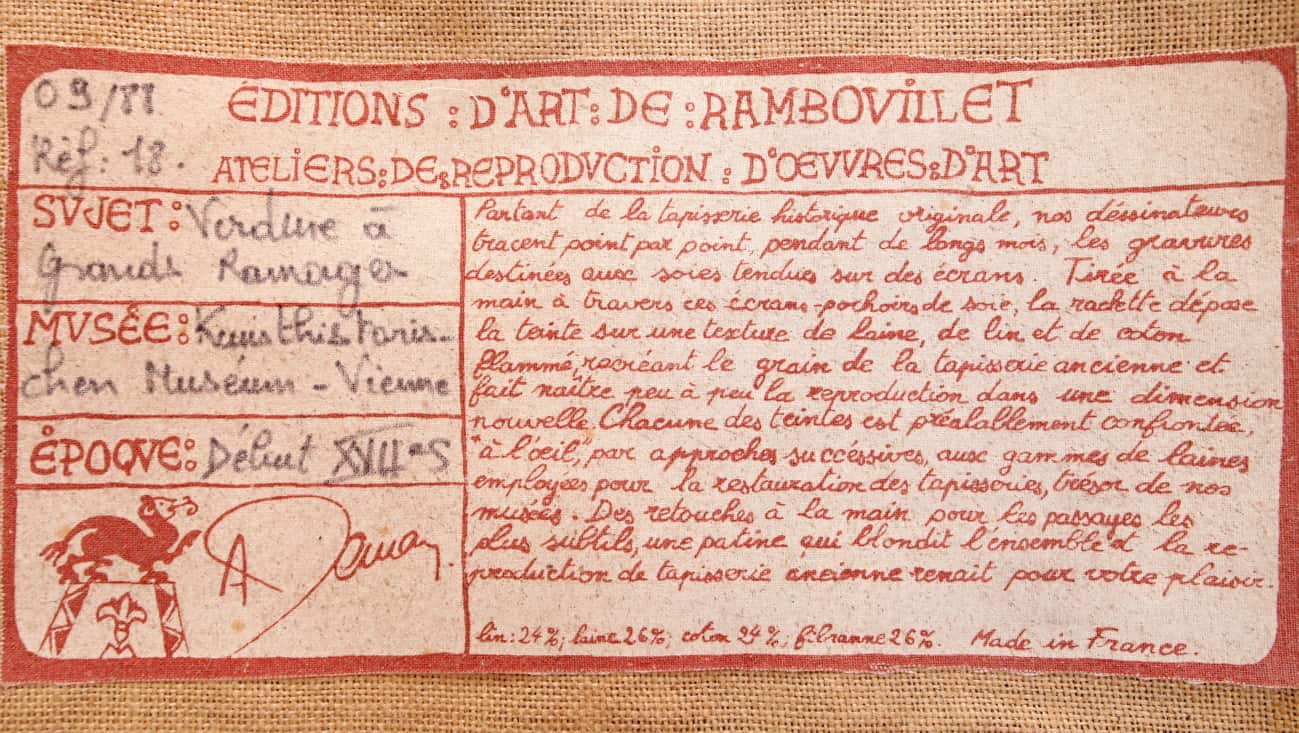 09/88
Réf: 18.
ÉDITIONS : D'ART : DE : RAMBOVILLET
ATELIERS : DE : REPRODVCTION : D'ŒVVRES : D'ART
SVJET : Verdure à
Grands Ramages
MVSÊE : Kunsthistoris-
chen Muséum - Vienne
ÉPOQVE : Début XVIIe S
A Deman
Partant de la tapisserie historique originale, nos déssinateurs
tracent point par point, pendant de longs mois, les gravures
destinées aux soies tendues sur des écrans. Tirée à la
main à travers ces écrans-pochoirs de soie, la raclette dépose
la teinte sur une texture de laine, de lin et de coton
flammé, recréant le grain de la tapisserie ancienne et
fait naître peu à peu la reproduction dans une dimension
nouvelle. Chacune des teintes est préalablement confrontée,
"à l'oeil", par approches succéssives, aux gammes de laines
employées pour la restauration des tapisseries, trésor de nos
musées. Des retouches à la main pour les passages les
plus subtils, une patine qui blondit l'ensemble et la re-
production de tapisserie ancienne renait pour votre plaisir.
lin: 24%; laine 26%, coton 24%; fibranne 26%. Made in France.